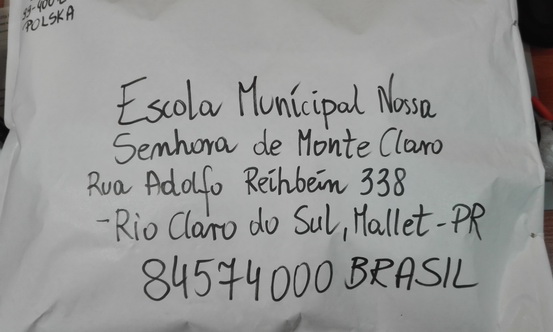 POLSKA
Escola Munícipal Nossa
Senhora de Monte Claro
Rua Adolfo Reihbein 338
-Rio Claro do Sul, Mallet-PR
84574000 BRASIL